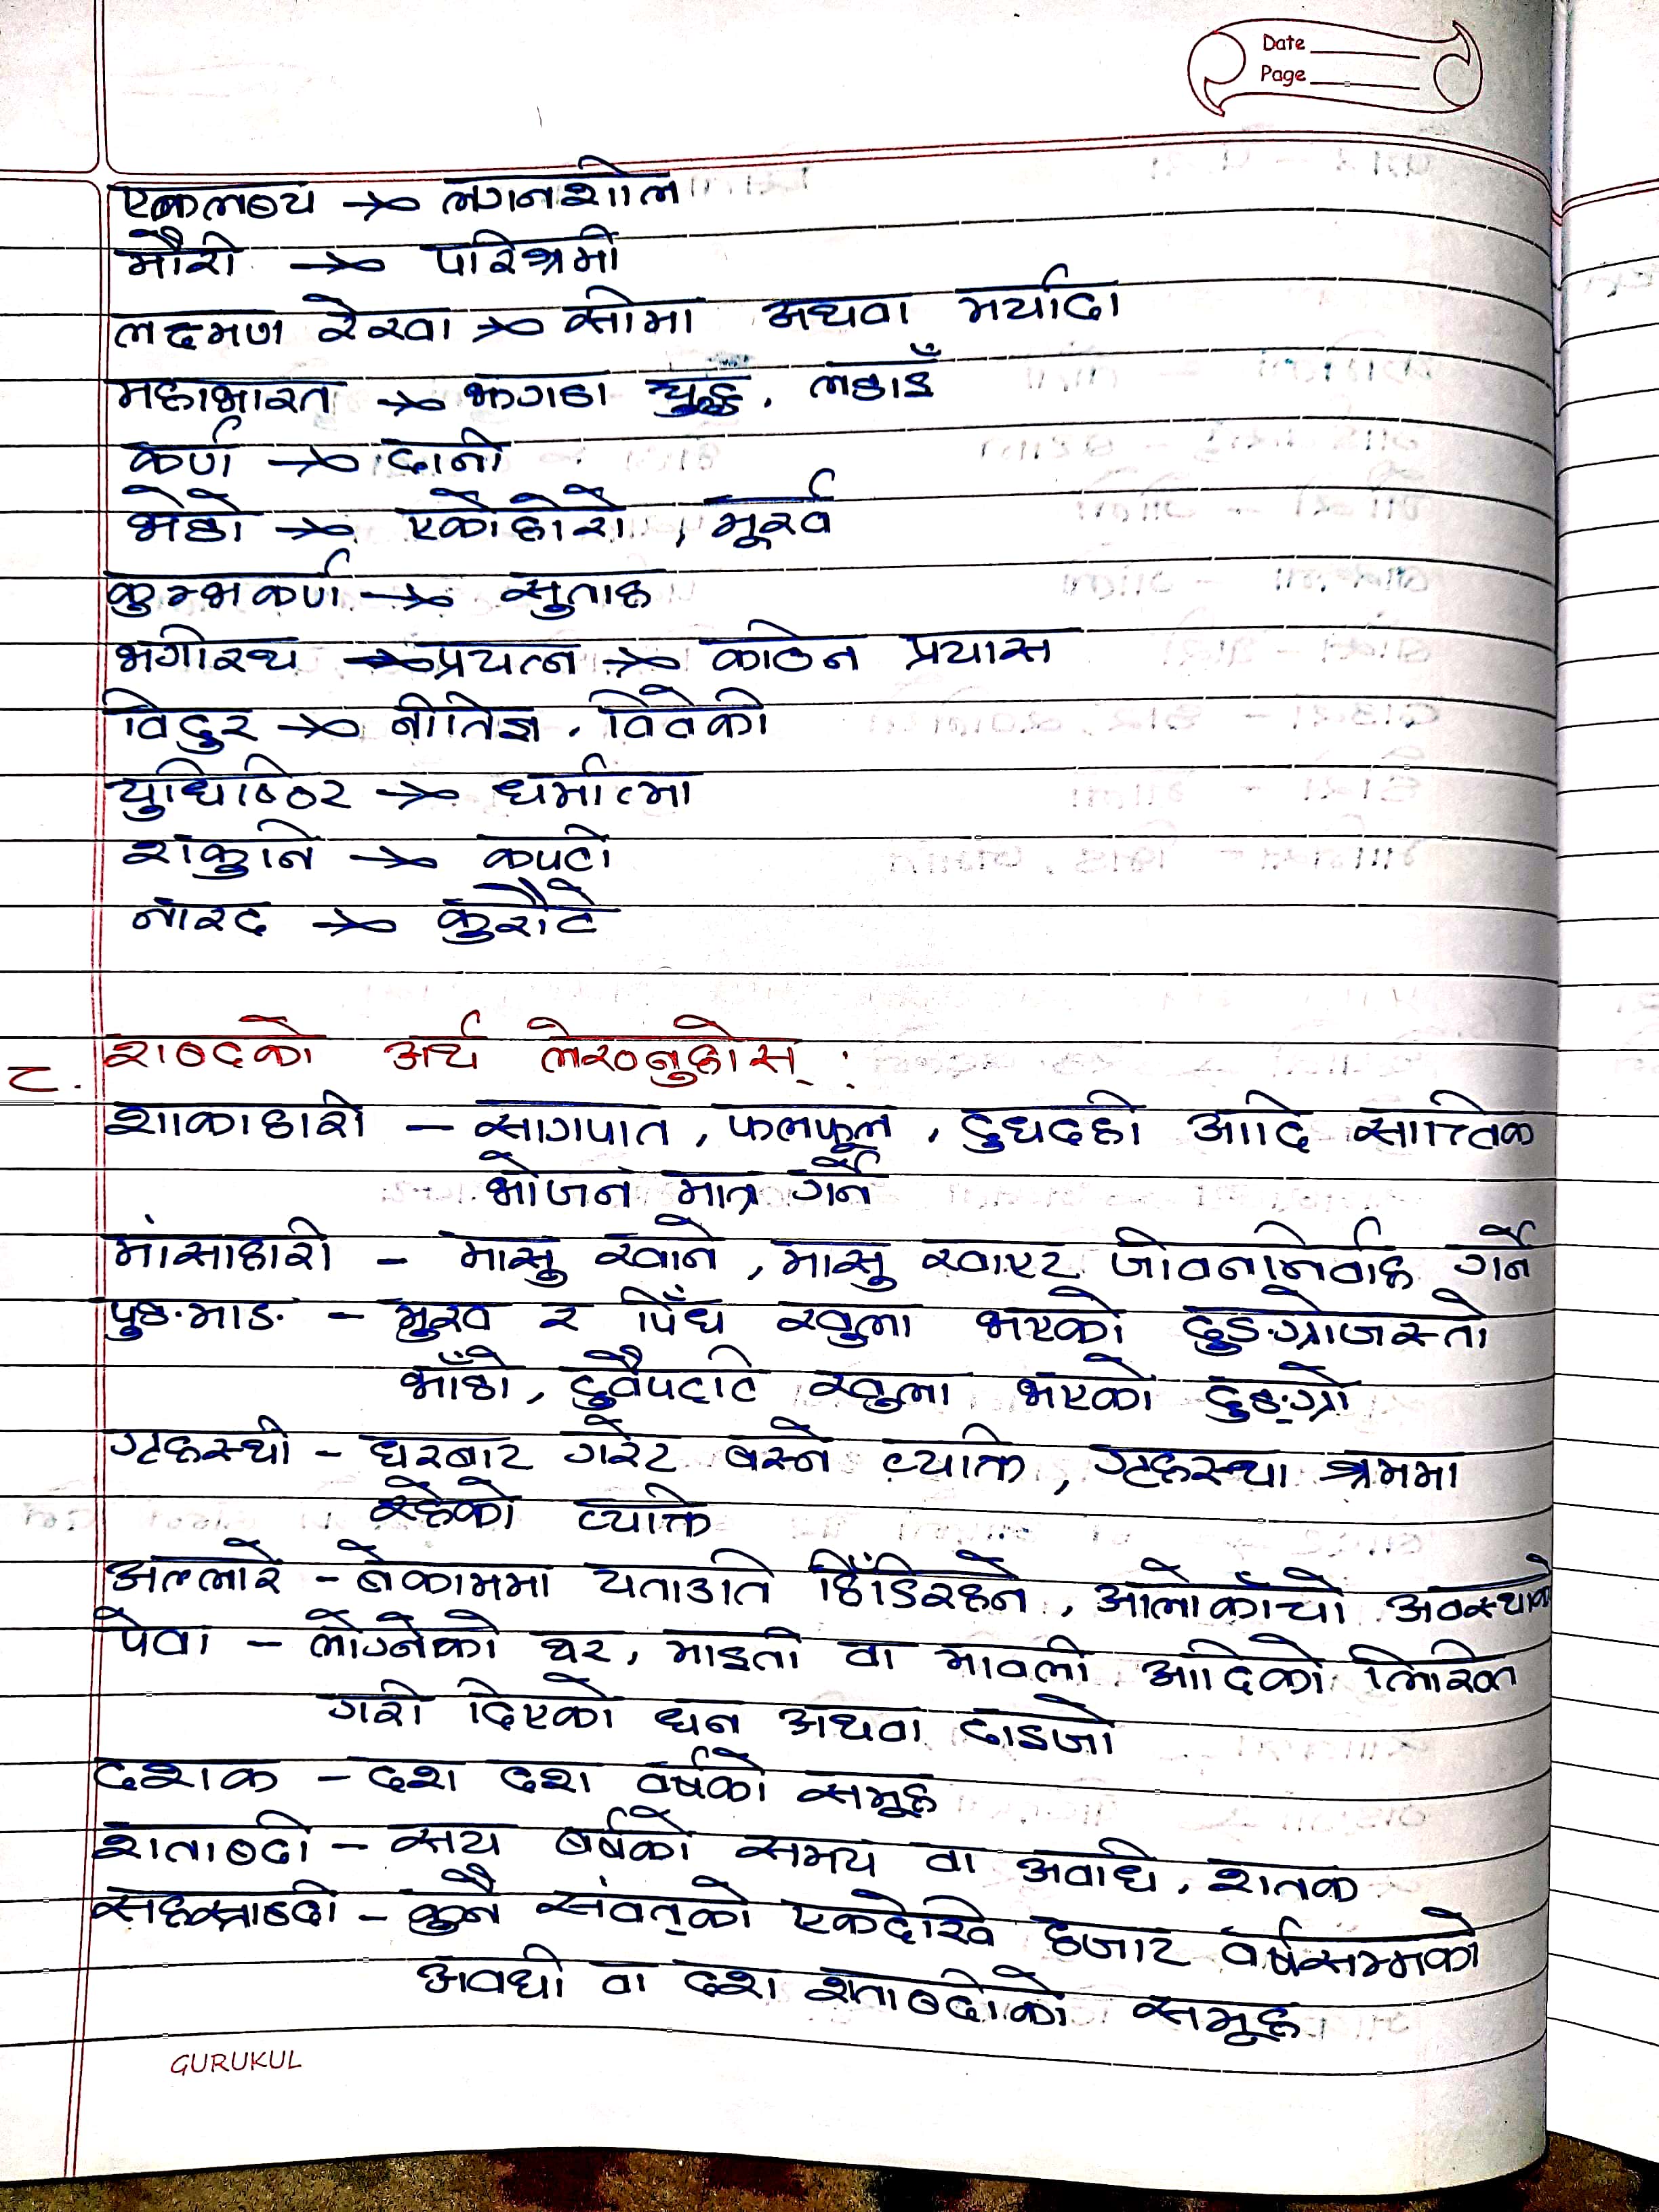 Date
Page
एकलव्य → लगनशील
मौरी → परिश्रमी
लक्ष्मण रेखा → सीमा अथवा मर्यादा
महाभारत → झगडा युद्ध, लडाइँ
कर्ण → दानी
भेडो → एकोहोरो, मूर्ख
कुम्भकर्ण → सुताह
भगीरथ प्रयत्न → कठिन प्रयास
विदुर → नीतिज्ञ, विवेकी
युधिष्ठिर → धर्मात्मा
शकुनि → कपटी
नारद → कुरौटे
८. शब्दको अर्थ लेख्नुहोस् :
शाकाहारी - सागपात, फलफूल, दुधदही आदि सात्त्विक
भोजन मात्र गर्ने
मांसाहारी - मासु खाने, मासु खाएर जीवननिर्वाह गर्ने
पुङ.माङ. - मुख र पिँध खुला भएको ढुङ.ग्रोजस्तो
भाँडो, दुवैपट्टि खुला भएको ढुङ.ग्रो
गृहस्थी - घरबार गरेर बस्ने व्यक्ति, गृहस्था श्रममा
रहेको व्यक्ति
अल्लारे - बेकाममा यताउति हिँडिरहने, आलोकाँचो अवस्थाको
पेवा - लोग्नेको घर, माइती वा मावली आदिको
गरी दिएको धन अथवा दाइजो
दशक - दश दश वर्षको समूह
शताब्दी - सय बर्षको समय वा अवधि, शतक
सहस्राब्दी - कुनै संवत्को एकदेखि हजार वर्षसम्मको
अवधी वा दश शताब्दीको समूह
GURUKUL